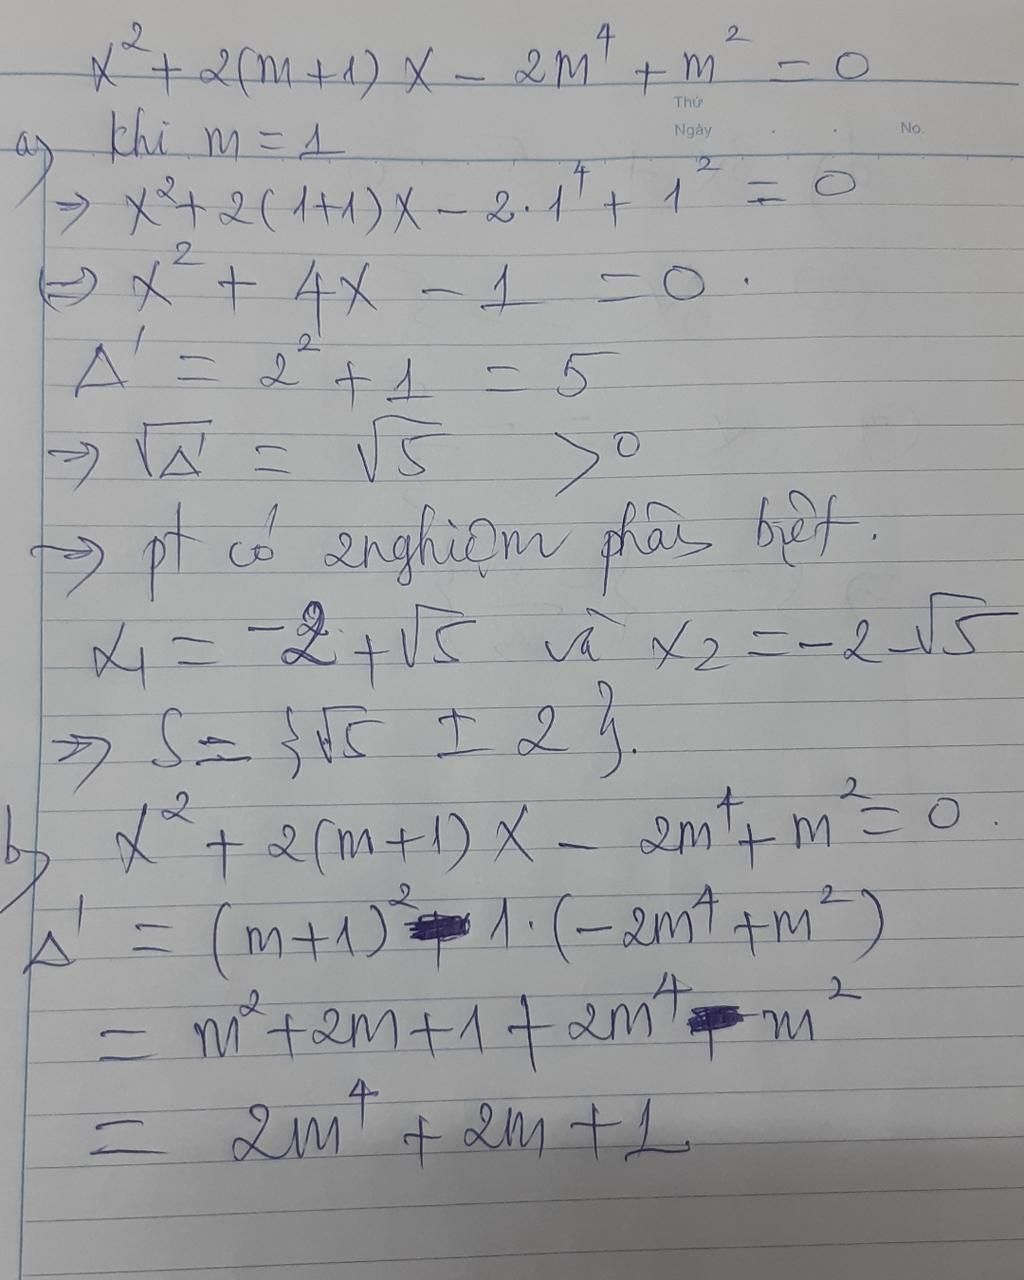 x² + 2(m+1) x - 2m⁴ + m² = 0
Thứ
Ngày . . No.
a) khi m = 1
=> x² + 2(1+1)x - 2.1⁴ + 1² = 0
(=> x² + 4x - 1 = 0.
Δ' = 2² + 1 = 5
=> √Δ' = √5 > 0
=> pt có 2 nghiệm phân biệt.
x₁ = -2 + √5 và x₂ = -2 - √5
=> S = {√5 ± 2}.
b) x² + 2(m+1) x - 2m⁴ + m² = 0.
Δ' = (m+1)² - 1.(-2m⁴ + m²)
= m² + 2m + 1 + 2m⁴ - m²
= 2m⁴ + 2m + 1